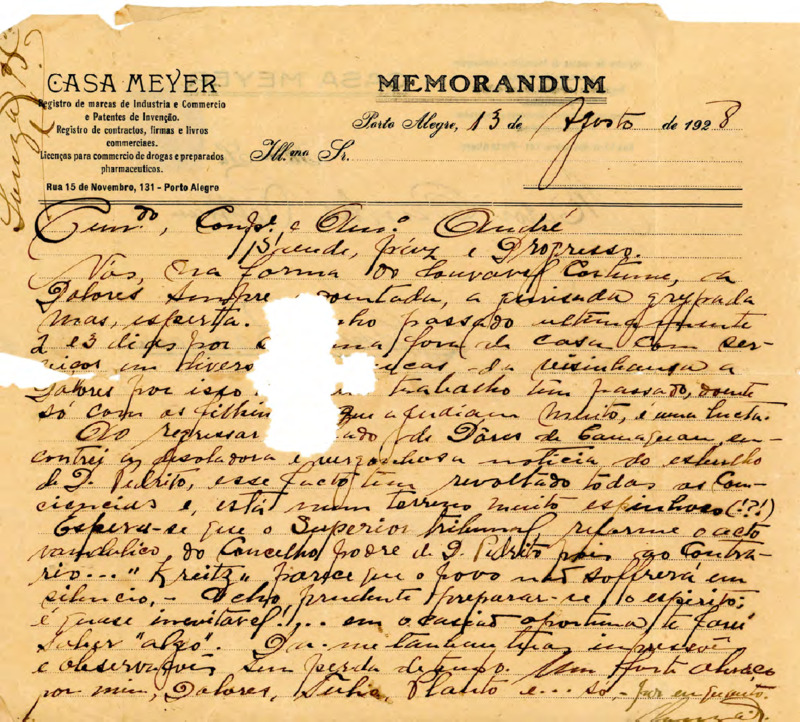 CASA MEYER
Registro de marcas de Industria e Commercio
e Patentes de Invenção.
Registro de contractos, firmas e livros
commerciaes.
Licenças para commercio de drogas e preparados
pharmaceuticos.
Rua 15 de Novembro, 131 - Porto Alegre
MEMORANDUM
Porto Alegre, 13 de Agosto de 1928
Ill.mo Sr.
Comp.e e Am.o André
Saude, Páuz e Progresso
Vou, na forma do louvavel costume, a
Dolores sempre a grippada
mas, esperta. passado ultimamente
2 e 3 dias por fora de casa com ser-
viços em divers da visinhansa a
Dolores por isso trabalho tem passado, doente
só com os filhin que ajudiam muito, é uma lucta.
Ao regressar de Dôres de Camaquam, en-
contrei a desoladora e vergonhosa noticia do esbulho
de D. Pedrito, esse facto tem revoltado todas as Con-
ciencias e, está num terreno muito espinhoso (!?!)
Espera-se que o Superior tribunal reforme o acto
vandalico, do Concelho podre de D. Pedrito pois ao Contra-
rio... "Kreitz" parece que o povo não soffrerá em
silencio, - Acho prudente preparar-se o espirito;
é quase inevitavel!... em ocasião oportuna te farei
saber "algo". Da-me tambem tuas impressõe
e observações sem perda de tempo. Um forte abraço
por mim, Dolores, Tulio, Plauto e... só, - por enquanto.